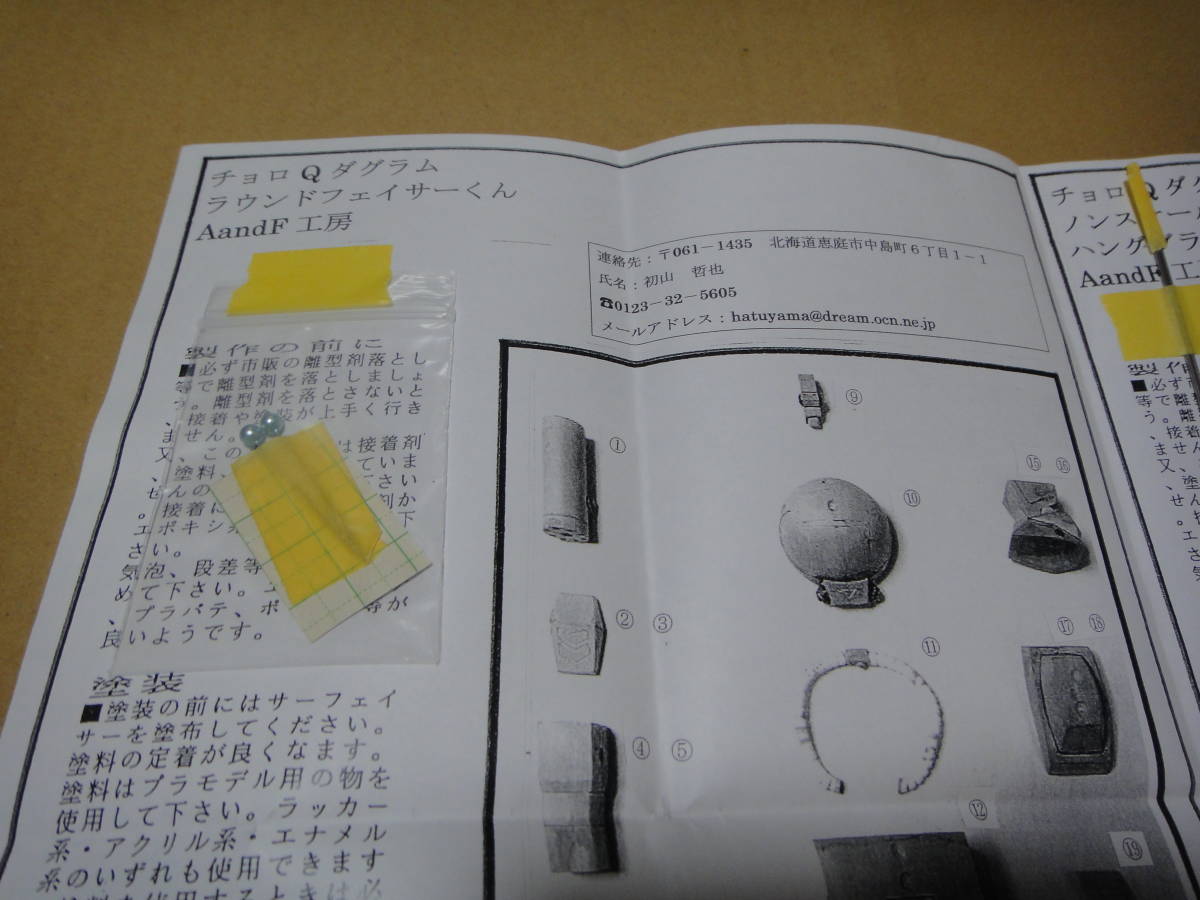 チョロQダグラム
ラウンドフェイサーくん
AandF工房
連絡先:〒061-1435 北海道恵庭市中島町6丁目1-1
氏名:初山 哲也
☎0123-32-5605
メールアドレス:hatuyama@dream.ocn.ne.jp
製作の前に
■必ず市販の離型剤落とし
等で離型剤を落としましょ
う。離型剤を落とさないと
、接着や塗装が上手く行き
ません。
又、この は接着剤
、塗料、 ていま
せんの さい
。接着に 剤か
エポキシ 下
さい。
気泡、段差等
めて下さい。
、プラパテ、ポ 等が
良いようです。
塗装
■塗装の前にはサーフェイ
サーを塗布してください。
塗料の定着が良くなます。
塗料はプラモデル用の物を
使用して下さい。ラッカー
系・アクリル系・エナメル
系のいずれも使用できます
①
② ③
④ ⑤
⑨
⑩
⑪
⑫
⑮ ⑯
⑰ ⑱
⑲
チョロQダグ
ノンスケール
ハンググラ
AandF工